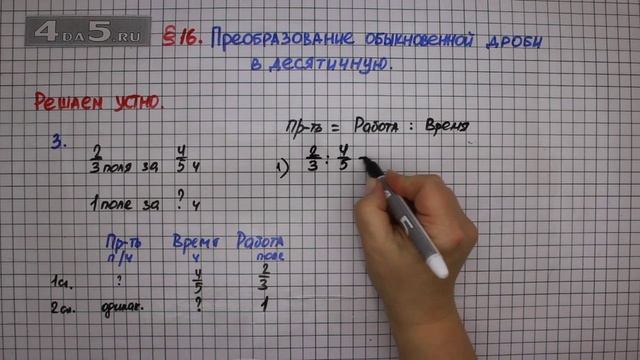 4DA5.RU
§16. Преобразование обыкновенной дроби
в десятичную.
Решаем устно.
Пр-ть = Работа : Время
3.
2/3 поля за 4/5 ч
1) 2/3 : 4/5 =
1 поле за ? ч
Пр-ть Время Работа
п/ч ч поле
1сл. ? 4/5 2/3
2сл. одинак. ? 1